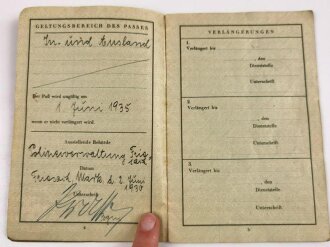 GELTUNGSBEREICH DES PASSES
In- und Ausland
Der Paß wird ungültig am
1. Juni 1935
wenn er nicht verlängert wird.
Ausstellende Behörde
Polizeiverwaltung
Datum
Mark, d. 2. Juni
1930
Unterschrift
4
VERLÄNGERUNGEN
1.
Verlängert bis
, den
Dienststelle
Unterschrift
2.
Verlängert bis
, den
Dienststelle
Unterschrift
3.
Verlängert bis
, den
Dienststelle
Unterschrift